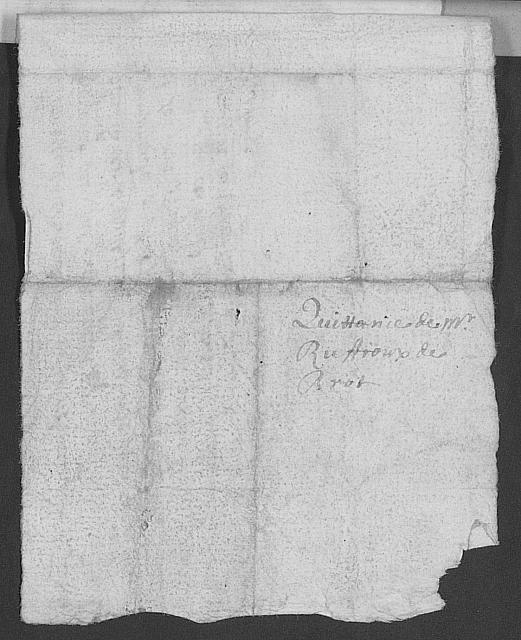 Quittance de Mr
Ruffroux de
Brot